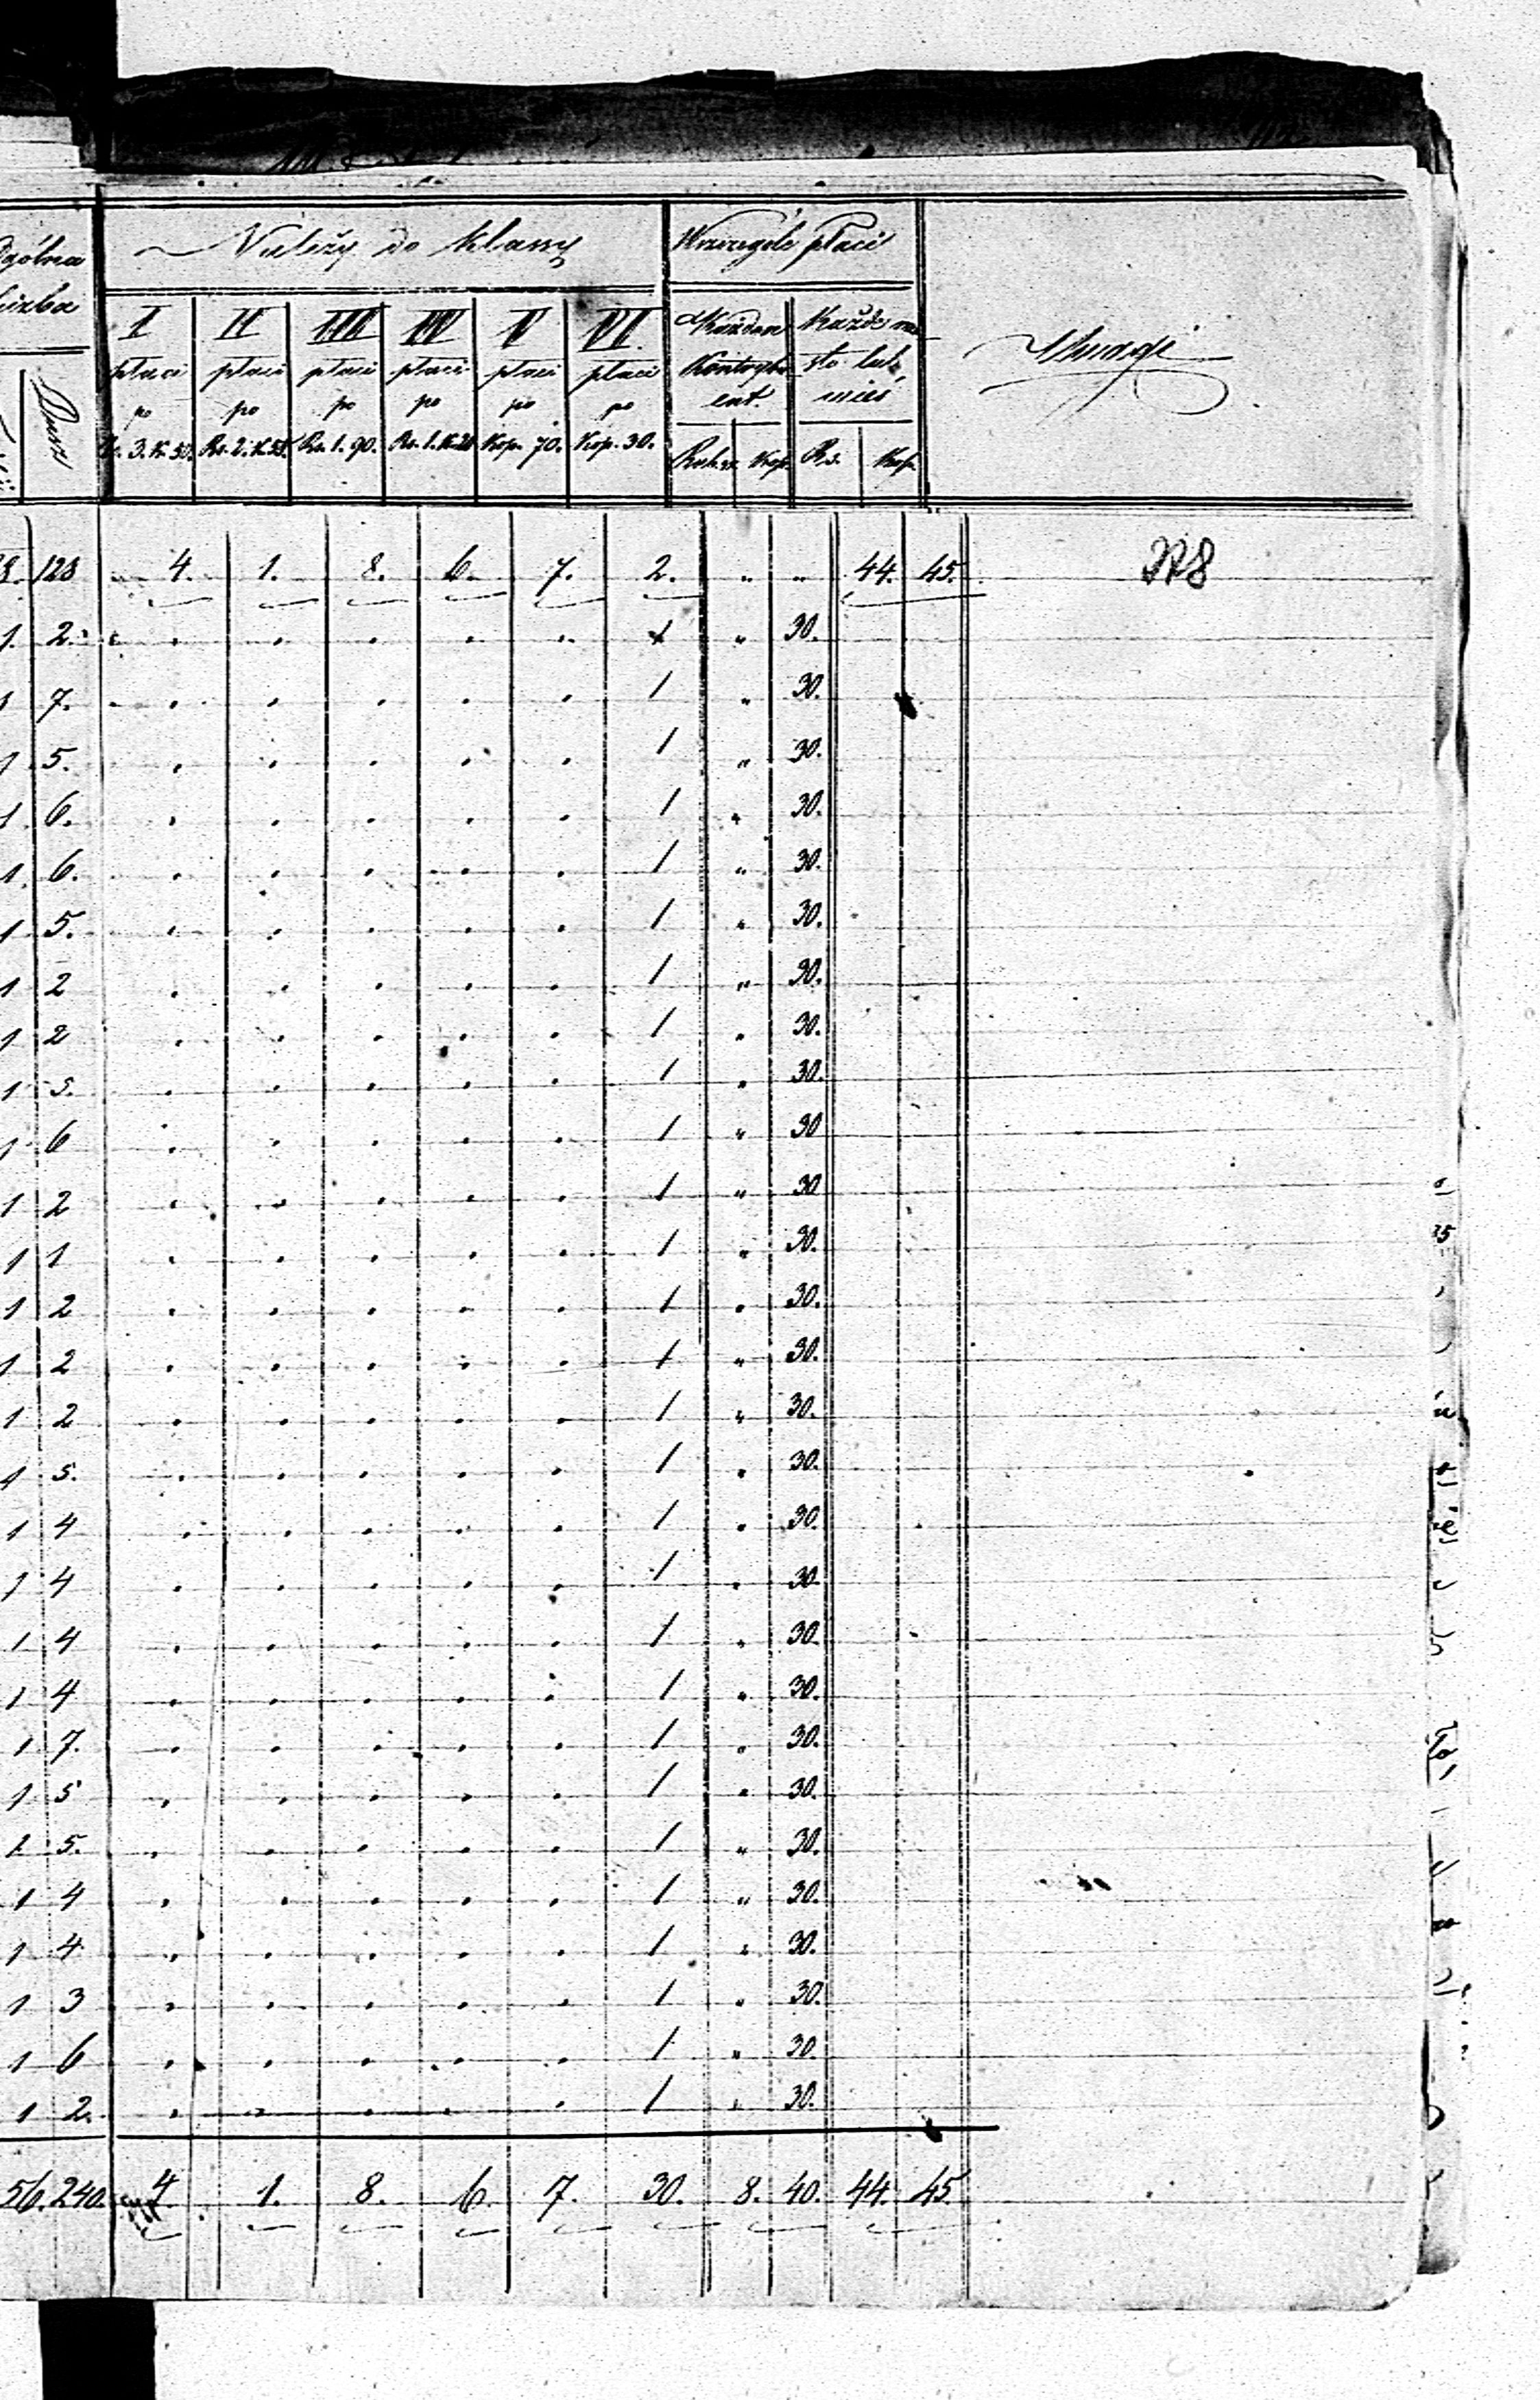 Należy do klassy Wszczególe płaci
Ogólna
liczba
I II III IV V VI. Każden Każde mia-
płaci płaci płaci płaci płaci płaci Kontrybu sto lub Uwagi
po po po po po po ent. wieś
Dusz Rs. 3. K. 50. Rs. 2. K. 55. Rs. 1. 90. Rs. 1. K. 20 Kop. 70. Kop. 30. Rubsr. Kop. Rs. Kop.
128 4. 1. 8. 6. 7. 2. " " 44. 45. 378
1. 2. . . . . . 1 " 30.
1 7. . . . . . 1 " 30.
1 5. . . . . . 1 " 30.
1 6. . . . . . 1 " 30.
1. 6. . . . . . 1 " 30.
1 5. . . . . . 1 " 30.
1 2 . . . . . 1 " 30.
1 2 . . . . . 1 " 30.
1 5. . . . . . 1 " 30.
1 6 . . . . . 1 " 30
1 2 . . . . . 1 " 30
1 1 . . . . . 1 " 30.
1 2 . . . . . 1 " 30.
1 2 . . . . . 1 " 30.
1 2 . . . . . 1 " 30.
1 5. . . . . . 1 " 30.
1 4 . . . . . 1 " 30.
1 4 . . . . . 1 " 30.
1 4 . . . . . 1 " 30.
1 4 . . . . . 1 " 30.
1. 7. . . . . . 1 " 30.
1 5 . . . . . 1 " 30.
1 5. . . . . . 1 " 30.
1 4 . . . . . 1 " 30.
1 4 . . . . . 1 " 30.
1 3 . . . . . 1 " 30.
1 6 . . . . . 1 " 30.
1 2. . . . . . 1 " 30.
56. 240. 4. 1. 8. 6. 7. 30. 8. 40. 44. 45.